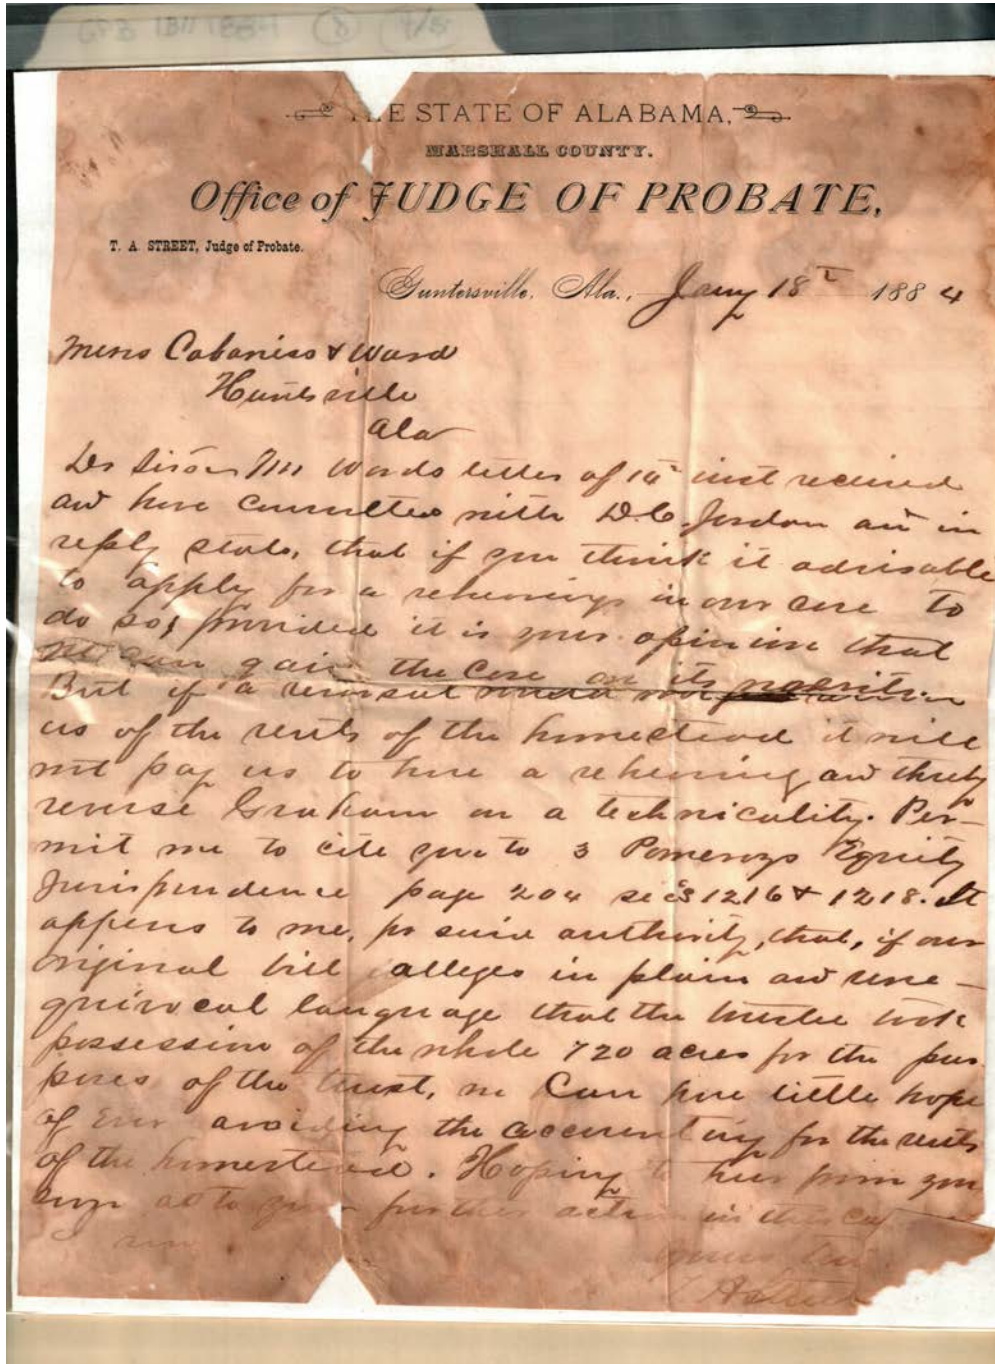 THE STATE OF ALABAMA,
MARSHALL COUNTY.
Office of JUDGE OF PROBATE,
T. A. STREET, Judge of Probate.
Guntersville, Ala., Jany 18 1884
Messrs Cabaniss & Ward
Huntsville
Ala
Dr Sirs Mr Wards letter of inst received
and have consulted with D.C. Jordan and in
reply state, that if you think it advisable
to apply for a rehearing in our case to
do so, provided it is your opinion that
we can gain the case on its merits.
But if a reversal would not
us of the rents of the homestead it will
not pay us to have a rehearing and thereby
reverse Graham on a technicality. Per-
mit me to cite you to 3 Pomeroys Equity
Jurisprudence page 204 secs 1216 & 1218. It
appears to me, pr said authority, that, if our
original bill alleges in plain and une-
quivocal language that the trustee took
possession of the whole 720 acres for the pur-
poses of the trust, we Can have little hope
of ever avoiding the accounting for the rents
of the homestead. Hoping to hear from you
as to your further action in this
Yours